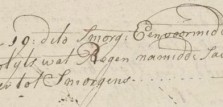 10. dito Smorg: Een voormidd
wat Regen namidd:
tot Smorgens